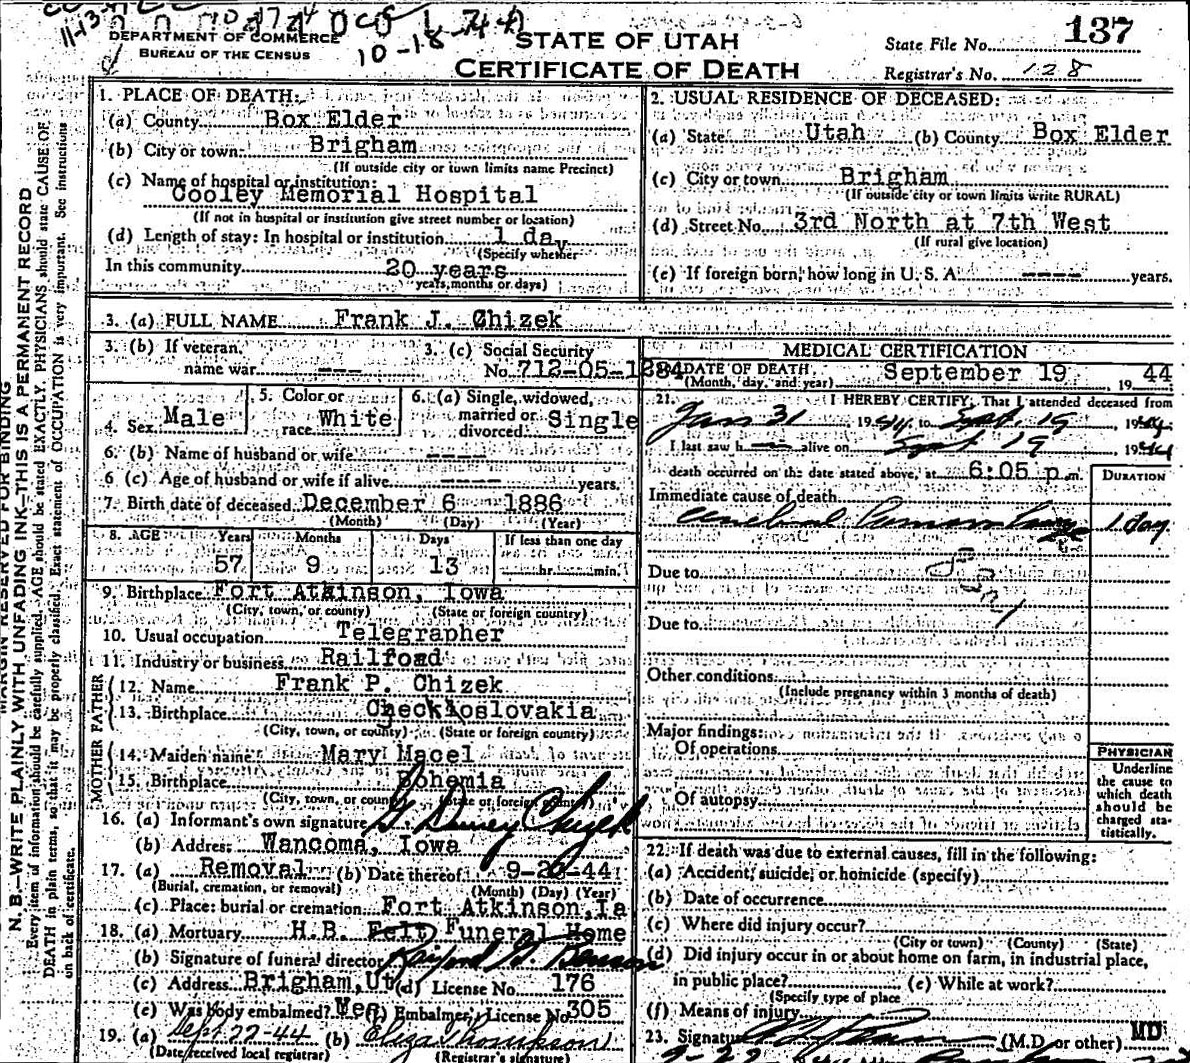 DEPARTMENT OF COMMERCE
BUREAU OF THE CENSUS
10-18-44
STATE OF UTAH
CERTIFICATE OF DEATH
State File No. 137
Registrar's No. 128
MARGIN RESERVED FOR BINDING
N. B.—WRITE PLAINLY WITH UNFADING INK—THIS IS A PERMANENT RECORD
Every item of information should be carefully supplied. AGE should be stated EXACTLY. PHYSICIANS should state CAUSE OF
DEATH in plain terms, so that it may be properly classified. Exact statement of OCCUPATION is very important. See instructions
on back of certificate.
1. PLACE OF DEATH:
(a) County Box Elder
(b) City or town Brigham
(If outside city or town limits name Precinct)
(c) Name of hospital or institution:
Cooley Memorial Hospital
(If not in hospital or institution give street number or location)
(d) Length of stay: In hospital or institution 1 day
(Specify whether
In this community 20 years
years, months or days)
2. USUAL RESIDENCE OF DECEASED:
(a) State Utah (b) County Box Elder
(c) City or town Brigham
(If outside city or town limits write RURAL)
(d) Street No. 3rd North at 7th West
(If rural give location)
(e) If foreign born, how long in U. S. A. ---- years.
3. (a) FULL NAME Frank J. Chizek
3. (b) If veteran, name war ---
3. (c) Social Security No. 712-05-1284
4. Sex Male
5. Color or race White
6. (a) Single, widowed, married or divorced Single
6. (b) Name of husband or wife ----
6 (c) Age of husband or wife if alive ---- years.
7. Birth date of deceased December 6 1886
(Month) (Day) (Year)
8. AGE Years Months Days If less than one day
57 9 13 hr. min.
9. Birthplace Fort Atkinson, Iowa
(City, town, or county) (State or foreign country)
10. Usual occupation Telegrapher
11. Industry or business Railroad
FATHER
12. Name Frank P. Chizek
13. Birthplace Checkloslovakia
(City, town, or county) (State or foreign country)
MOTHER
14. Maiden name Mary Macel
15. Birthplace Bohemia
(City, town, or county) (State or foreign country)
16. (a) Informant's own signature G. Dewey Chizek
(b) Address Wancoma, Iowa
17. (a) Removal (b) Date thereof 9-23-44
(Burial, cremation, or removal) (Month) (Day) (Year)
(c) Place: burial or cremation Fort Atkinson, Ia
18. (a) Mortuary H.B. Felt Funeral Home
(b) Signature of funeral director
(c) Address Brigham, Ut (d) License No. 176
(e) Was body embalmed? Yes (f) Embalmer, License No. 305
19. (a) Sept 22-44 (b) Eliza Thompkson
(Date received local registrar) (Registrar's signature)
MEDICAL CERTIFICATION
DATE OF DEATH
(Month, day, and year) September 19, 19 44
21. I HEREBY CERTIFY, That I attended deceased from
Jan 31 1944, to Sept. 19, 1944.
I last saw h alive on Sept 19, 1944
death occurred on the date stated above, at 6:05 p.m.
DURATION
Immediate cause of death
Cerebral 1 day
Due to
Due to
Other conditions
(Include pregnancy within 3 months of death)
Major findings:
Of operations
Of autopsy
PHYSICIAN
Underline
the cause to
which death
should be
charged sta-
tistically.
22. If death was due to external causes, fill in the following:
(a) Accident, suicide, or homicide (specify)
(b) Date of occurrence
(c) Where did injury occur?
(City or town) (County) (State)
(d) Did injury occur in or about home on farm, in industrial place,
in public place? (e) While at work?
(Specify type of place
(f) Means of injury
23. Signature (M.D. or other) MD